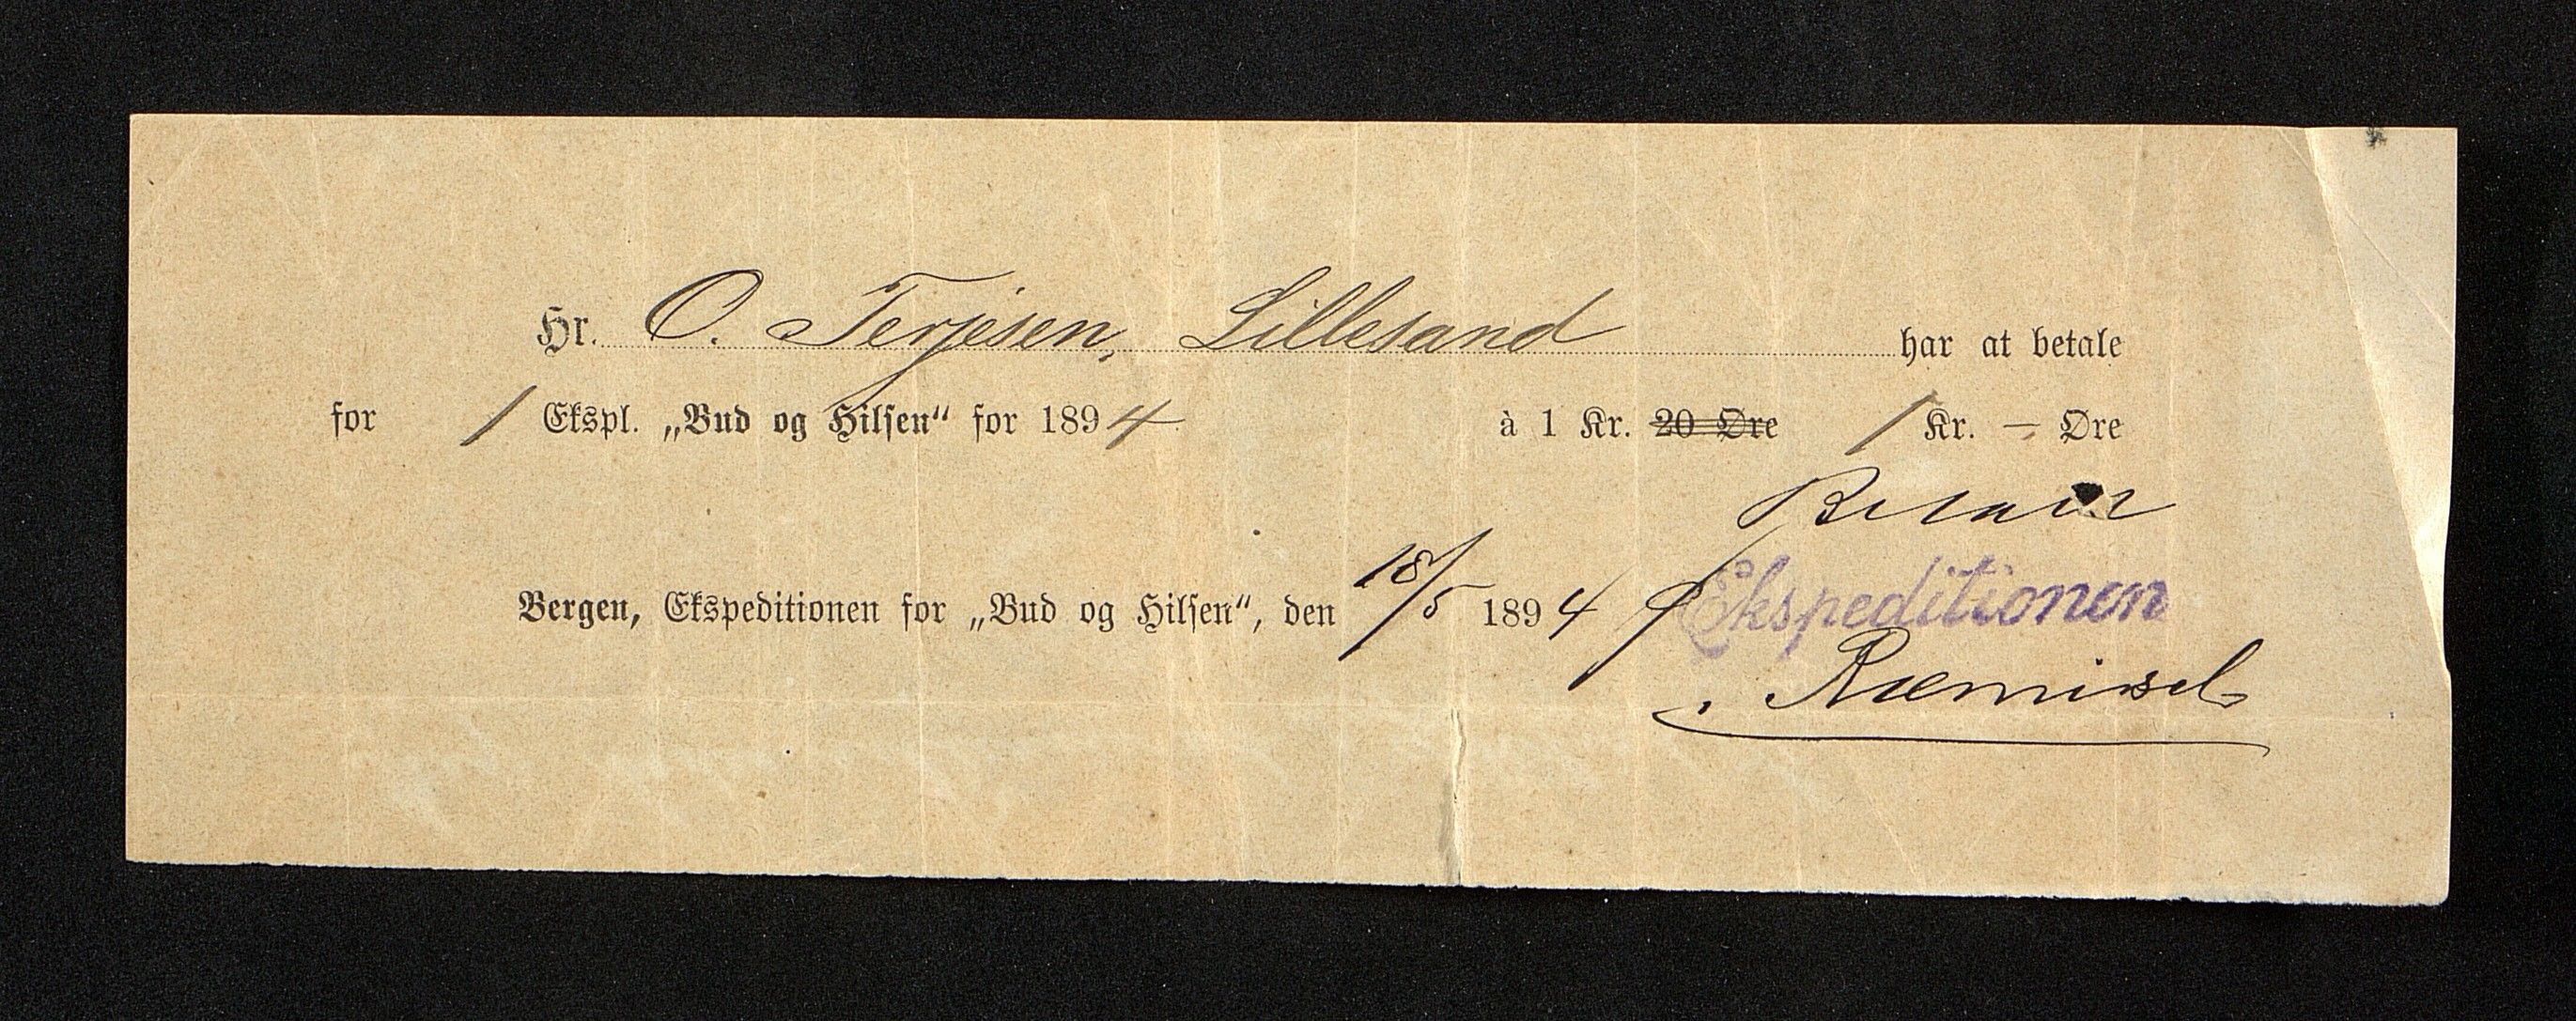 Hr. O. Terjesen, Lillesand har at betale
for 1 Ekspl. „Bud og Hilsen“ for 1894 à 1 Kr. 20 Øre 1 Kr. – Øre
Betalt
Bergen, Ekspeditionen for „Bud og Hilsen“, den 18/5 1894 Ekspeditionen